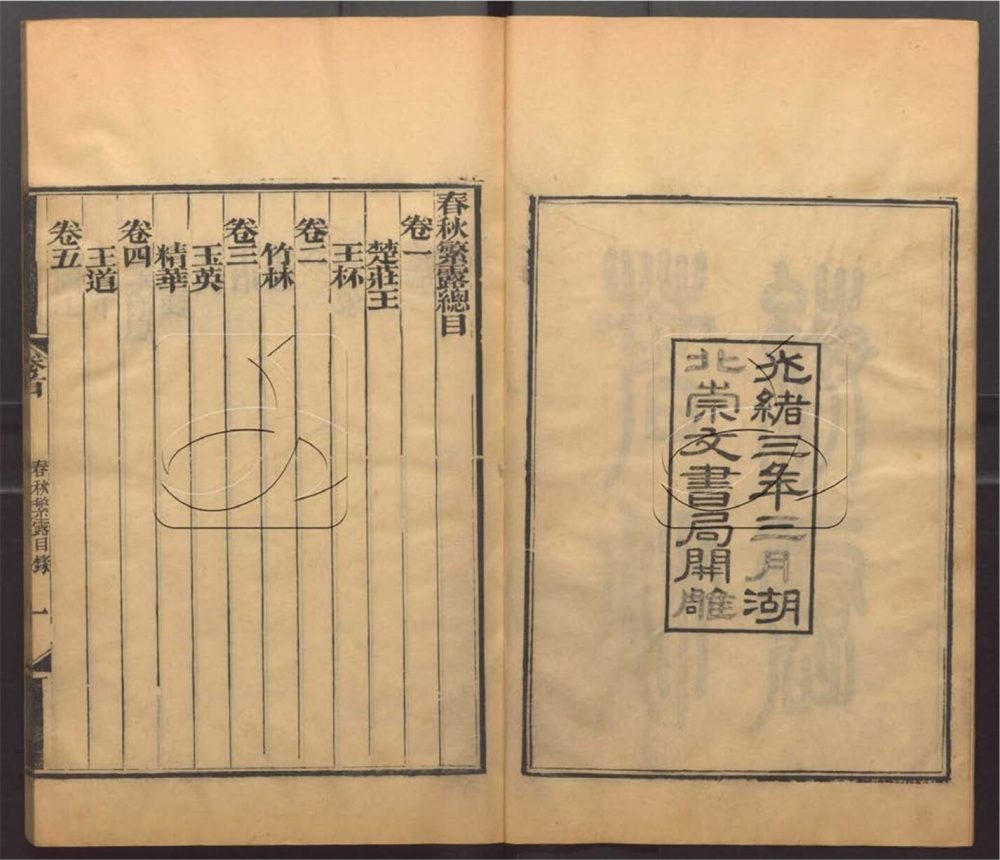 光緒三年三月湖
北崇文書局開雕
春秋繁露總目
卷一
楚莊王
王杯
卷二
竹林
卷三
玉英
精華
卷四
王道
卷五
卷首
春秋繁露目錄
一